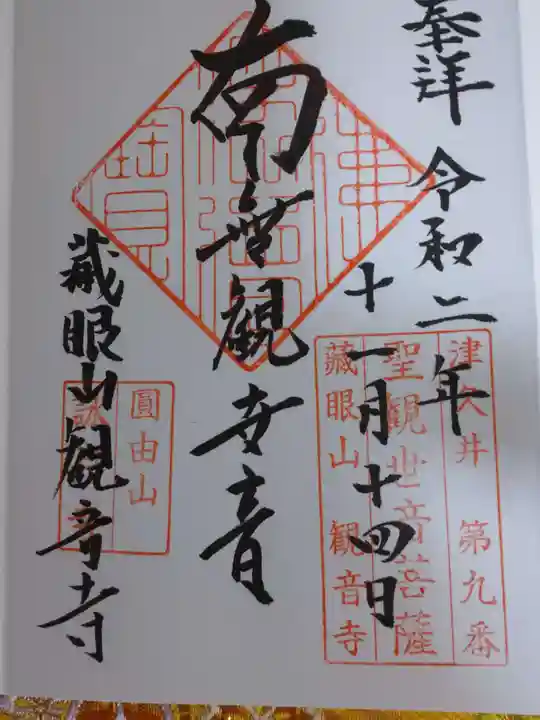 奉拝
令和二年
十一月十四日
南無観世音
蔵眼山観音寺
津久井 第九番
聖観世音菩薩
藏眼山 観音寺
圓由山